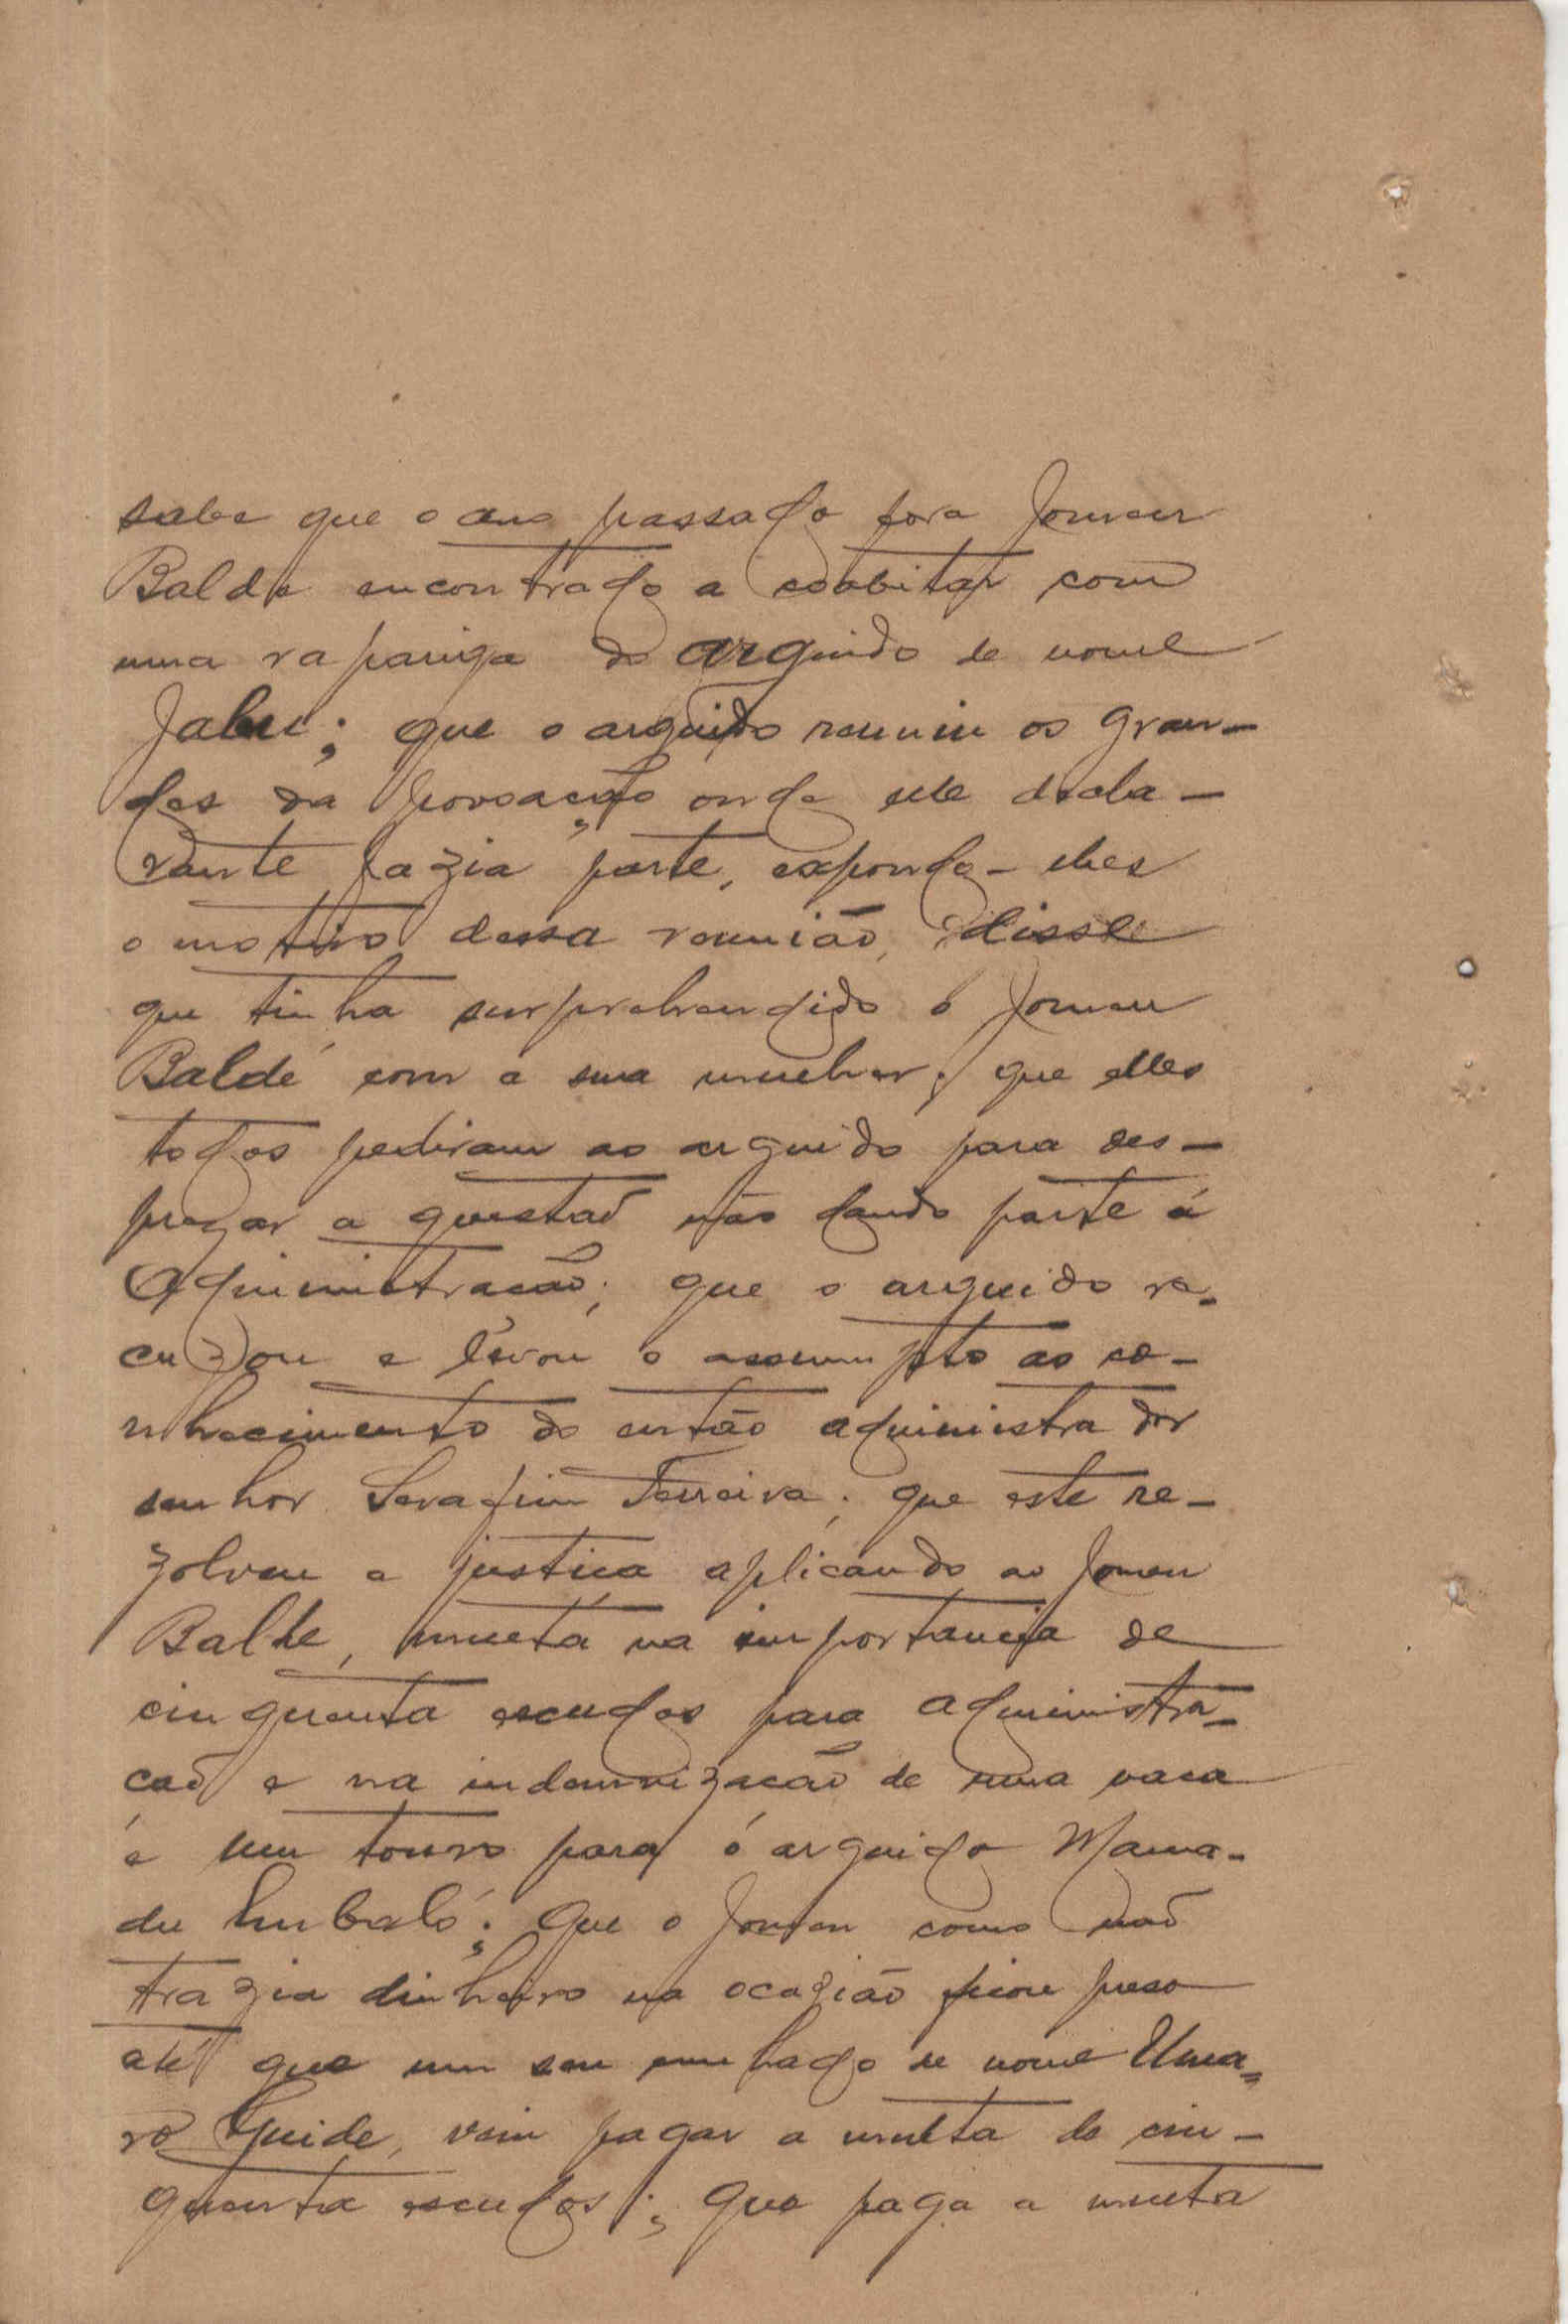 sabe que o ano passado fora Jomeu
Balde encontrado a coabitar com
uma rapariga do arguido de nome
Jabu; que o arguido reuniu os gran-
des da povoação onde ele decla-
rante fazia parte, expondo-lhes
o motivo dessa reunião, disse
que tinha surprehendido o Jomeu
Baldé com a sua mulher; que elles
todos pediram ao arguido para des-
prezar a questaõ não dando parte á
Administração; que o arguido re-
cuzou e levou o assumpto ao co-
nhecimento do então administrador
senhor Serafim Ferreira; que este re-
zolveu a justiça aplicando ao Jomeu
Balde, multa na importancia de
cinquenta escudos para administra-
caõ e na indemnização de uma vaca
e um touro para o arguido Mama-
du Embaló; que o Jomeu como naõ
trazia dinheiro na ocazião ficou preso
até que um seu cunhado de nome Uma-
ro Guide, veiu pagar a multa de cin-
quenta escudos; que paga a multa